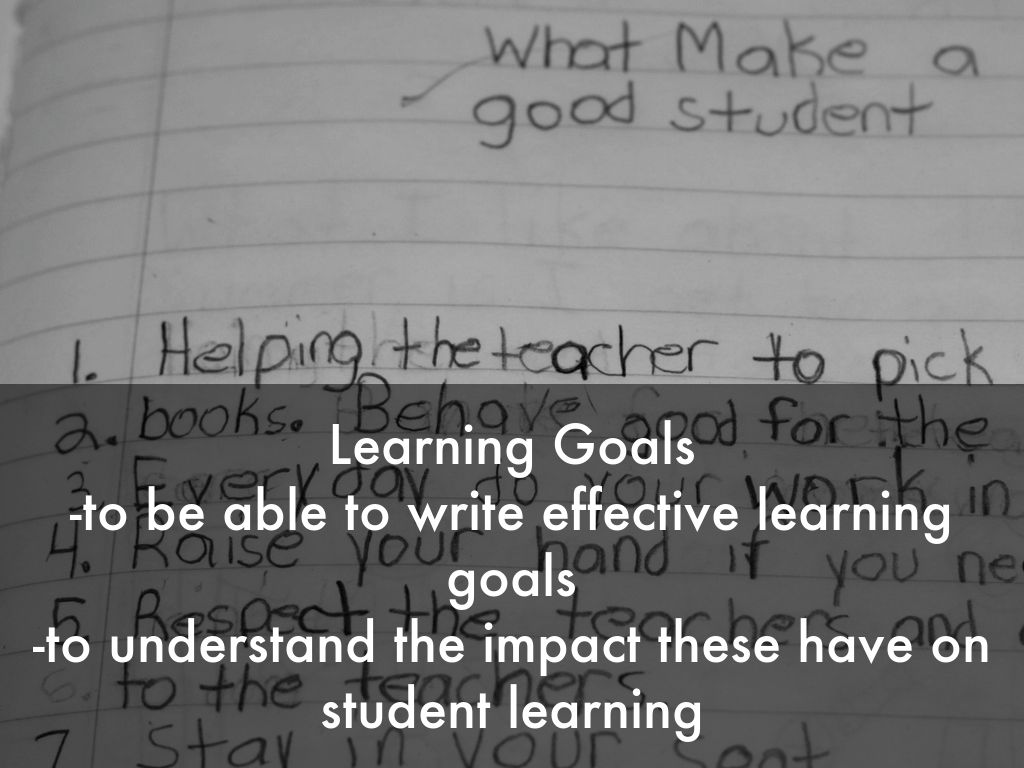 What Make a
good student
1. Helping the teacher to pick
2. books. Behave good for the
3. Everyday do your work in
4. Raise your hand if you ne
5. Respect the teachers and
6. to the teachers
7 Stay in your seat
Learning Goals
-to be able to write effective learning
goals
-to understand the impact these have on
student learning